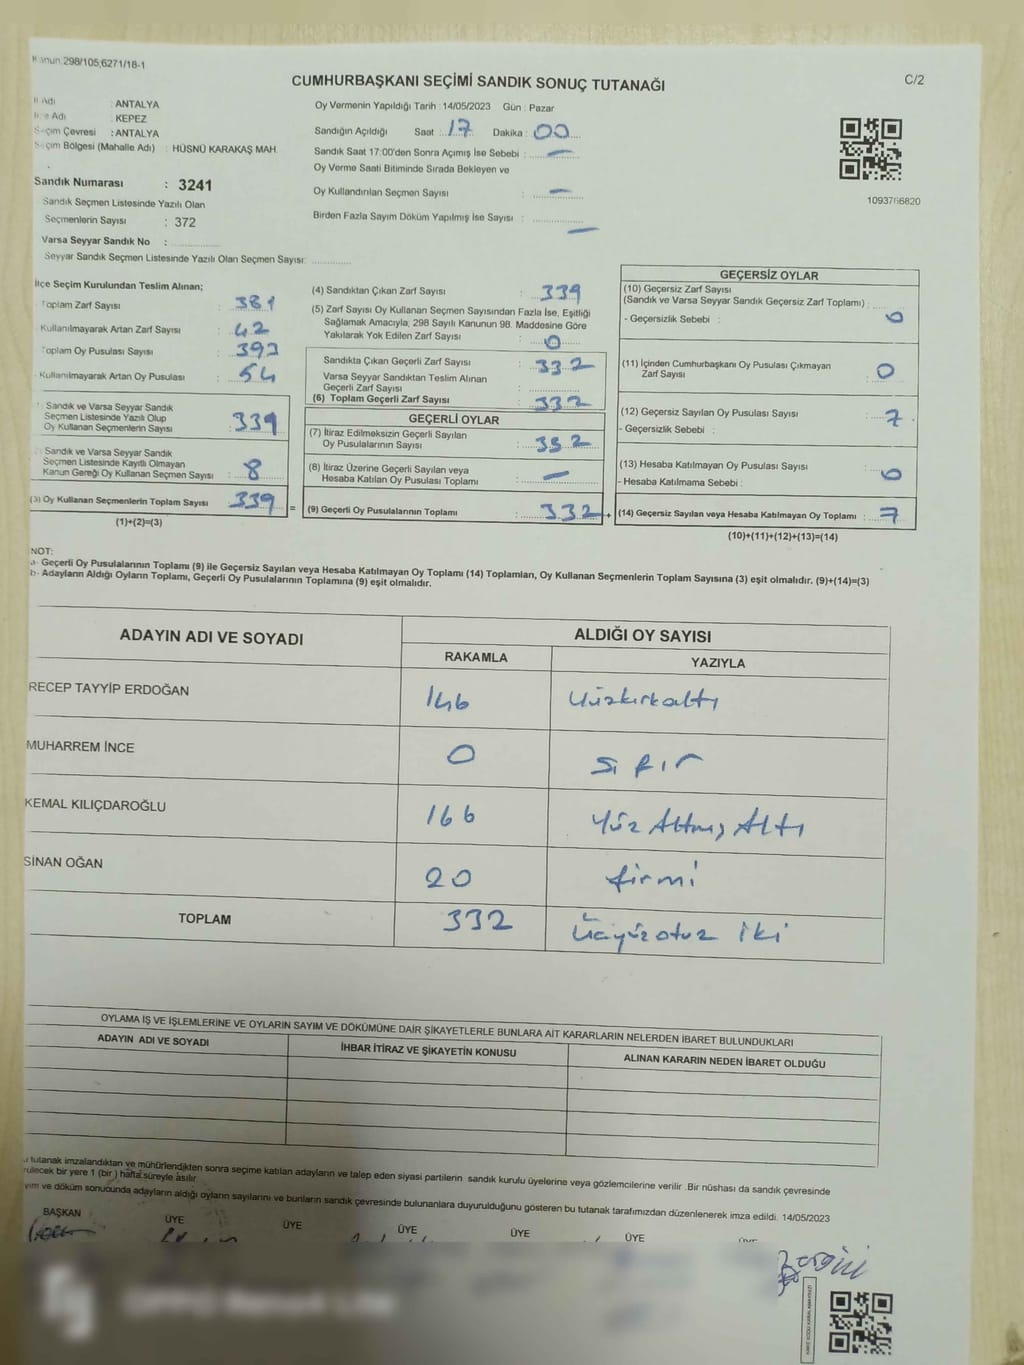 Kanun.298/105;6271/18-1
CUMHURBAŞKANI SEÇİMİ SANDIK SONUÇ TUTANAĞI
C/2
İl Adı : ANTALYA
İlçe Adı : KEPEZ
Seçim Çevresi : ANTALYA
Seçim Bölgesi (Mahalle Adı) : HÜSNÜ KARAKAŞ MAH.
Sandık Numarası : 3241
Sandık Seçmen Listesinde Yazılı Olan
Seçmenlerin Sayısı : 372
Varsa Seyyar Sandık No :
Seyyar Sandık Seçmen Listesinde Yazılı Olan Seçmen Sayısı:
Oy Vermenin Yapıldığı Tarih : 14/05/2023 Gün : Pazar
Sandığın Açıldığı Saat : 17 Dakika : 00
Sandık Saat 17:00'den Sonra Açımış İse Sebebi : —
Oy Verme Saati Bitiminde Sırada Bekleyen ve
Oy Kullandırılan Seçmen Sayısı : —
Birden Fazla Sayım Döküm Yapılmış İse Sayısı : —
1093766820
İlçe Seçim Kurulundan Teslim Alınan;
Toplam Zarf Sayısı : 381
Kullanılmayarak Artan Zarf Sayısı : 42
Toplam Oy Pusulası Sayısı : 393
Kullanılmayarak Artan Oy Pusulası : 54
Sandık ve Varsa Seyyar Sandık
Seçmen Listesinde Yazılı Olup
Oy Kullanan Seçmenlerin Sayısı : 339
Sandık ve Varsa Seyyar Sandık
Seçmen Listesinde Kayıtlı Olmayan
Kanun Gereği Oy Kullanan Seçmen Sayısı : 8
(3) Oy Kullanan Seçmenlerin Toplam Sayısı : 339
(1)+(2)=(3)
(4) Sandıktan Çıkan Zarf Sayısı : 339
(5) Zarf Sayısı Oy Kullanan Seçmen Sayısından Fazla İse, Eşitliği
Sağlamak Amacıyla; 298 Sayılı Kanunun 98. Maddesine Göre
Yakılarak Yok Edilen Zarf Sayısı : 0
Sandıkta Çıkan Geçerli Zarf Sayısı : 332
Varsa Seyyar Sandıktan Teslim Alınan
Geçerli Zarf Sayısı :
(6) Toplam Geçerli Zarf Sayısı : 332
GEÇERLİ OYLAR
(7) İtiraz Edilmeksizin Geçerli Sayılan
Oy Pusulalarının Sayısı : 332
(8) İtiraz Üzerine Geçerli Sayılan veya
Hesaba Katılan Oy Pusulası Toplamı : —
= (9) Geçerli Oy Pusulalarının Toplamı : 332 +
GEÇERSİZ OYLAR
(10) Geçersiz Zarf Sayısı
(Sandık ve Varsa Seyyar Sandık Geçersiz Zarf Toplamı) :
- Geçersizlik Sebebi : 0
(11) İçinden Cumhurbaşkanı Oy Pusulası Çıkmayan
Zarf Sayısı : 0
(12) Geçersiz Sayılan Oy Pusulası Sayısı : 7
- Geçersizlik Sebebi :
(13) Hesaba Katılmayan Oy Pusulası Sayısı :
- Hesaba Katılmama Sebebi : 0
(14) Geçersiz Sayılan veya Hesaba Katılmayan Oy Toplamı : 7
(10)+(11)+(12)+(13)=(14)
NOT:
a- Geçerli Oy Pusulalarının Toplamı (9) ile Geçersiz Sayılan veya Hesaba Katılmayan Oy Toplamı (14) Toplamları, Oy Kullanan Seçmenlerin Toplam Sayısına (3) eşit olmalıdır. (9)+(14)=(3)
b- Adayların Aldığı Oyların Toplamı, Geçerli Oy Pusulalarının Toplamına (9) eşit olmalıdır.
ADAYIN ADI VE SOYADI
ALDIĞI OY SAYISI
RAKAMLA YAZIYLA
RECEP TAYYİP ERDOĞAN 146 Yüzkırkaltı
MUHARREM İNCE 0 Sıfır
KEMAL KILIÇDAROĞLU 166 Yüz Altmış Altı
SİNAN OĞAN 20 Yirmi
TOPLAM 332 Üçyüzotuz iki
OYLAMA İŞ VE İŞLEMLERİNE VE OYLARIN SAYIM VE DÖKÜMÜNE DAİR ŞİKAYETLERLE BUNLARA AİT KARARLARIN NELERDEN İBARET BULUNDUKLARI
ADAYIN ADI VE SOYADI İHBAR İTİRAZ VE ŞİKAYETİN KONUSU ALINAN KARARIN NEDEN İBARET OLDUĞU
tutanak imzalandıktan ve mühürlendikten sonra seçime katılan adayların ve talep eden siyasi partilerin sandık kurulu üyelerine veya gözlemcilerine verilir .Bir nüshası da sandık çevresinde
bir yere 1 (bir ) hafta süreyle asılır
ve döküm sonucunda adayların aldığı oyların sayılarını ve bunların sandık çevresinde bulunanlara duyurulduğunu gösteren bu tutanak tarafımızdan düzenlenerek imza edildi. 14/05/2023
BAŞKAN ÜYE ÜYE ÜYE ÜYE ÜYE